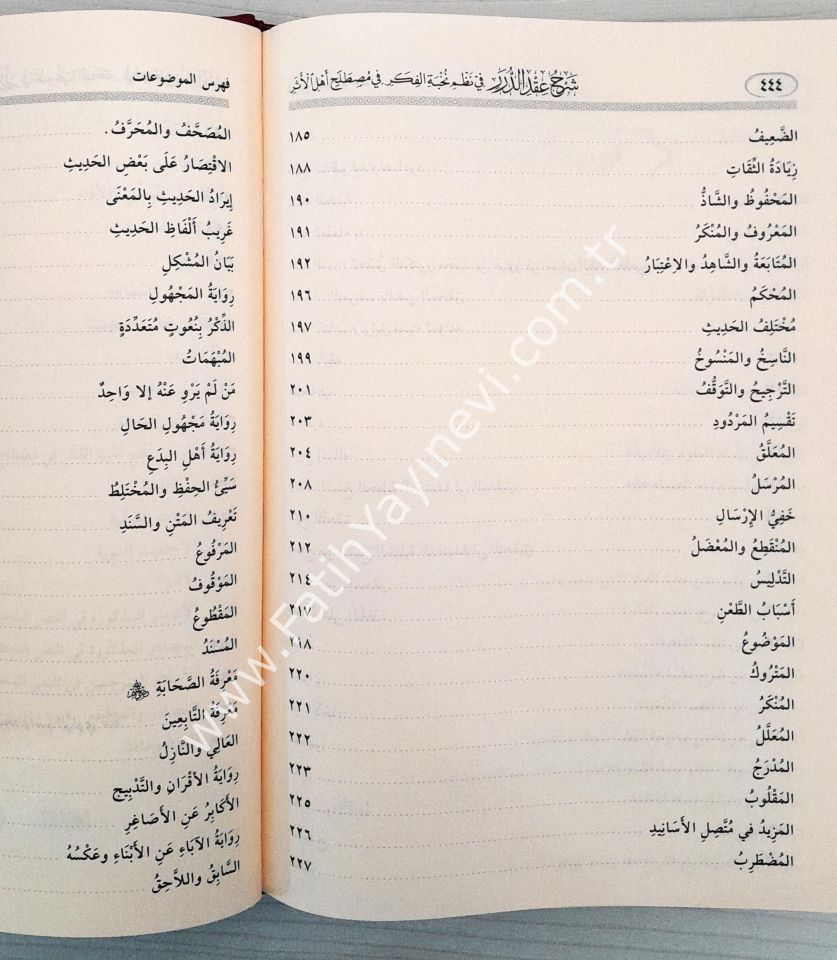 ٤٤٤ شرح عقد الدرر في نظم نخبة الفكر في مصطلح أهل الأثر
الضَّعِيفُ ١٨٥
زِيَادَةُ الثِّقَاتِ ١٨٨
المَحْفُوظُ والشَّاذُّ ١٩٠
المَعْرُوفُ والمُنْكَرُ ١٩١
المُتَابَعَةُ والشَّاهِدُ والاِعْتِبَارُ ١٩٢
المُحْكَمُ ١٩٦
مُخْتَلِفُ الحَدِيثِ ١٩٧
النَّاسِخُ والمَنْسُوخُ ١٩٩
التَّرْجِيحُ والتَّوَقُّفُ ٢٠١
تَقْسِيمُ المَرْدُودِ ٢٠٣
المُعَلَّقُ ٢٠٤
المُرْسَلُ ٢٠٨
خَفِيُّ الإِرْسَالِ ٢١٠
المُنْقَطِعُ والمُعْضَلُ ٢١٢
التَّدْلِيسُ ٢١٤
أَسْبَابُ الطَّعْنِ ٢١٧
المَوْضُوعُ ٢١٨
المَتْرُوكُ ٢٢٠
المُنْكَرُ ٢٢١
المُعَلَّلُ ٢٢٢
المُدْرَجُ ٢٢٣
المَقْلُوبُ ٢٢٥
المَزِيدُ في مُتَّصِلِ الأَسَانِيدِ ٢٢٦
المُضْطَرِبُ ٢٢٧
فهرس الموضوعات
المُصَحَّفُ والمُحَرَّفُ.
الاقْتِصَارُ عَلَى بَعْضِ الحَدِيثِ
إِيرَادُ الحَدِيثِ بِالمَعْنَى
غَرِيبُ أَلْفَاظِ الحَدِيثِ
بَيَانُ المُشْكِلِ
رِوَايَةُ المَجْهُولِ
الذِّكْرُ بِنُعُوتٍ مُتَعَدِّدَةٍ
المُبْهَمَاتُ
مَنْ لَمْ يَرْوِ عَنْهُ إلا وَاحِدٌ
رِوَايَةُ مَجْهُولِ الحَالِ
رِوَايَةُ أَهْلِ البِدَعِ
سَيِّئُ الحِفْظِ والمُخْتَلِطُ
تَعْرِيفُ المَتْنِ والسَّنَدِ
المَرْفُوعُ
المَوْقُوفُ
المَقْطُوعُ
المُسْنَدُ
مَعْرِفَةُ الصَّحَابَةِ
مَعْرِفَةُ التَّابِعِينَ
العَالِي والنَّازِلُ
رِوَايَةُ الأَقْرَانِ والتَّدْبِيجِ
الأَكَابِرُ عَنِ الأَصَاغِرِ
رِوَايَةُ الآبَاءِ عَنِ الأَبْنَاءِ وعَكْسُهُ
السَّابِقُ واللاَّحِقُ
www.FatihYayinevi.com.tr